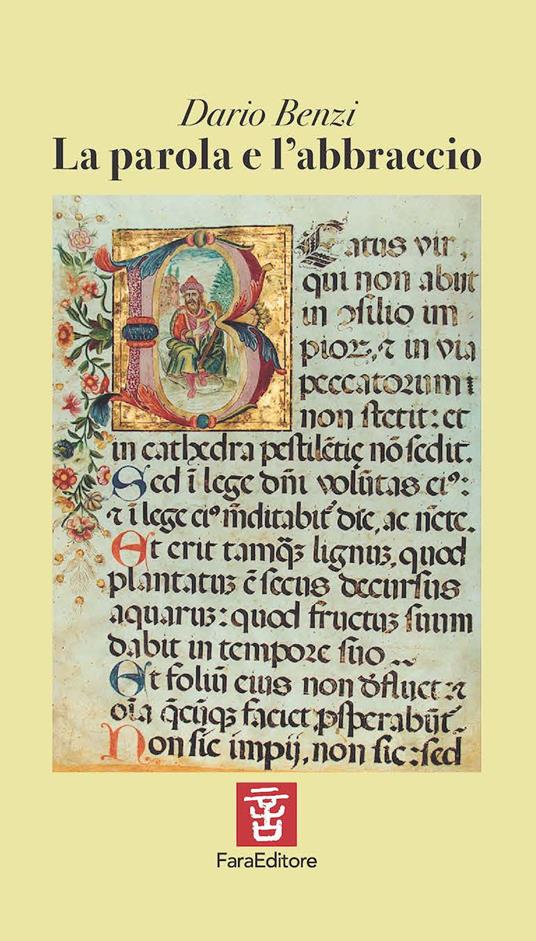 Dario Benzi
La parola e l'abbraccio
Beatus vir,
qui non abijt
in ꝯsilio im
pioꝝ, ⁊ in via
peccatorum
non stetit: et
in cathedra pestilẽtię nõ sedit.
Sed ĩ lege dñi volũtas eiꝰ:
⁊ ĩ lege eiꝰ m̃ditabit᷑ die, ac ncte.
Et erit tamqꝫ lignuꝫ, quod
plantatuꝫ ẽ secus decursus
aquaruꝫ: quod fructuꝫ suum
dabit in tempore suo
Et foliũ eius non dẽfluet ⁊
oĩa q̃cũqꝫ faciet ꝓsperabũt᷑
Non sic impij, non sic: sed
FaraEditore